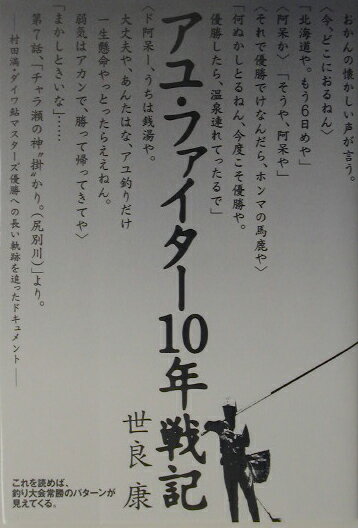 おかんの懐かしい声が言う。
〈今、どこにおるねん〉
「北海道や。もう6日めや」
〈阿呆か〉「そうや、阿呆や」
〈それで優勝でけなんだら、ホンマの馬鹿や〉
「何ぬかしとるねん、今度こそ優勝や。
優勝したら、温泉連れてったるで」
〈ド阿呆ー、うちは銭湯や。
大丈夫や、あんたはな、アユ釣りだけ
一生懸命やっとったらええねん。
弱気はアカンで、勝って帰ってきてや〉
「まかしときいな」……
第7話、「チャラ瀬の神“掛”かり。(尻別川)」より。
――村田満・ダイワ鮎マスターズ優勝への長い軌跡を追ったドキュメント――
アユ・ファイター10年戦記
世良 康
これを読めば、
釣り大会常勝のパターンが
見えてくる。